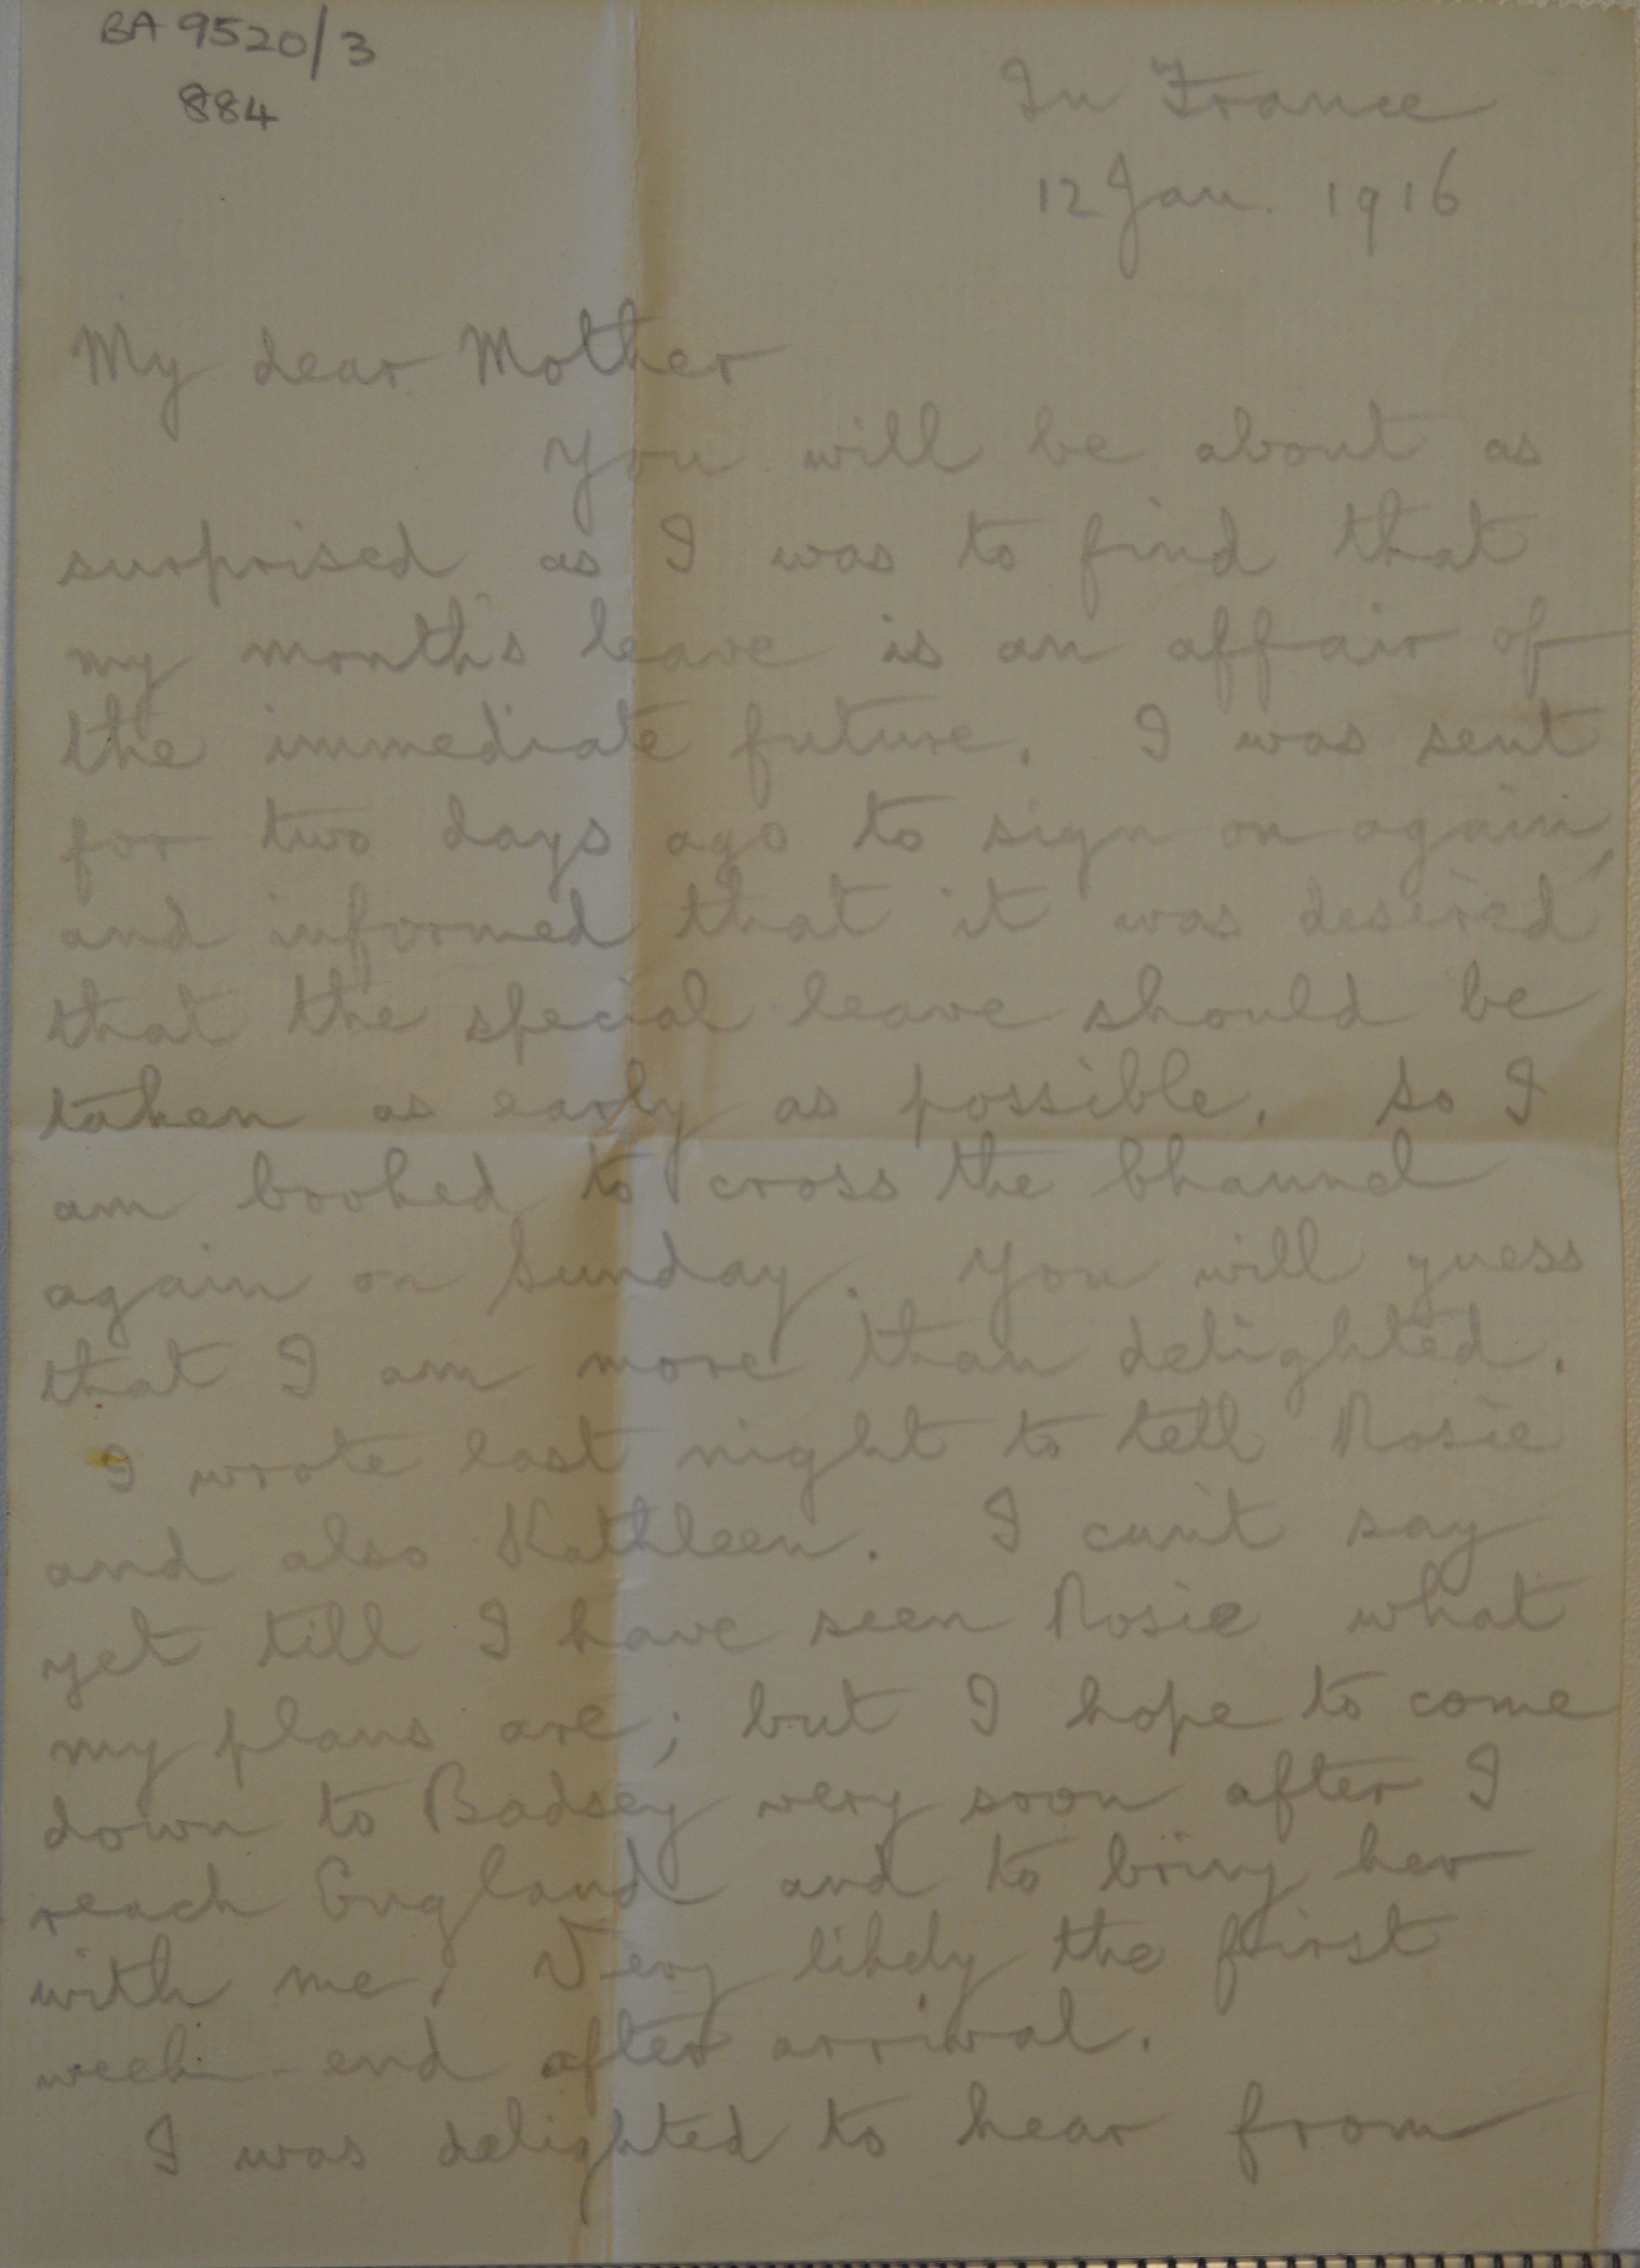 BA 9520/3
884
In France
12 Jan. 1916
My dear Mother
You will be about as
surprised as I was to find that
my month's leave is an affair of
the immediate future. I was sent
for two days ago to sign on again,
and informed that it was desired
that the special leave should be
taken as early as possible. So I
am booked to cross the Channel
again on Sunday. You will guess
that I am more than delighted.
I wrote last night to tell Rosie
and also Kathleen. I can't say
yet till I have seen Rosie what
my plans are; but I hope to come
down to Badsey very soon after I
reach England and to bring her
with me. Very likely the first
week-end after arrival.
I was delighted to hear from